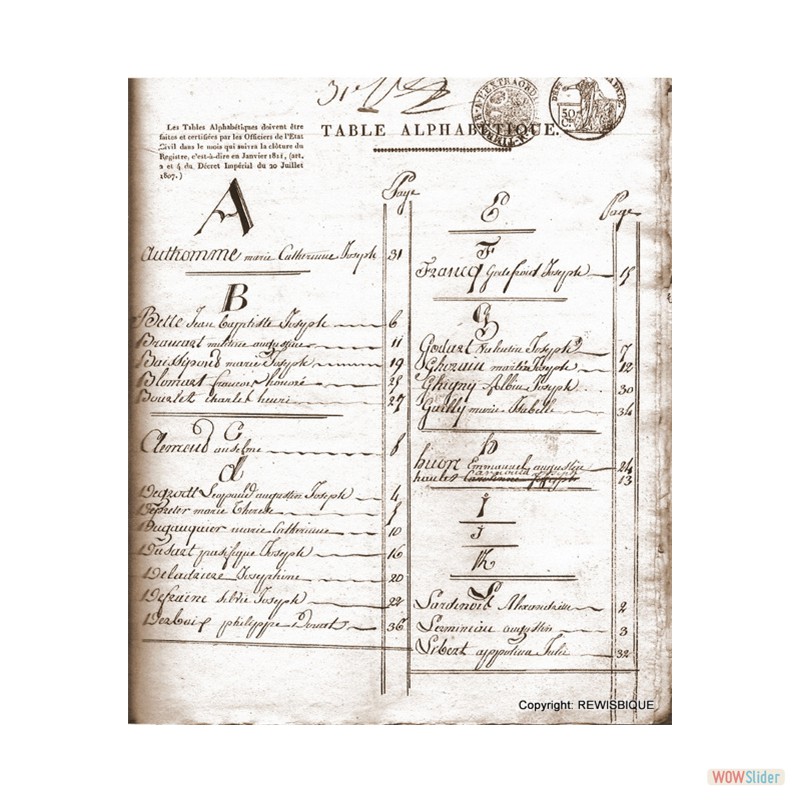 Les Tables Alphabétiques doivent être
faites et certifiées par les Officiers de l'Etat
Civil dans le mois qui suivra la clôture du
Registre, c'est-à-dire en Janvier 1811, (art.
2 et 4 du Décret Impérial du 20 Juillet
1807.)
TABLE ALPHABÉTIQUE.
50
Page
A
authomme marie Catherinne Joseph 31
B
Belle Jean Bapptiste Joseph 6
augustine 11
marie Joseph 19
Blomart francois honoré 25
Bourlet charles henri 27
C
Clement anselme 8
d
augustin Joseph 4
marie Therese
Dugauquier marie Catherinne 10
Dusart Joseph 16
Deladriere Josephine 20
Joseph 22
philippe 36
Page
E
F
Francq Godefroid Joseph 15
G
Godart Valentin Joseph 7
martin Joseph 12
Ghigny Albin Joseph 30
marie Isabelle 34
h
huon Emmanuel augustin 24
13
I
J
K
L
Lardenoit Alexandrine 2
Lermineau augustin 3
Libert Julie 32
Copyright: REWISBIQUE
WOWSlider